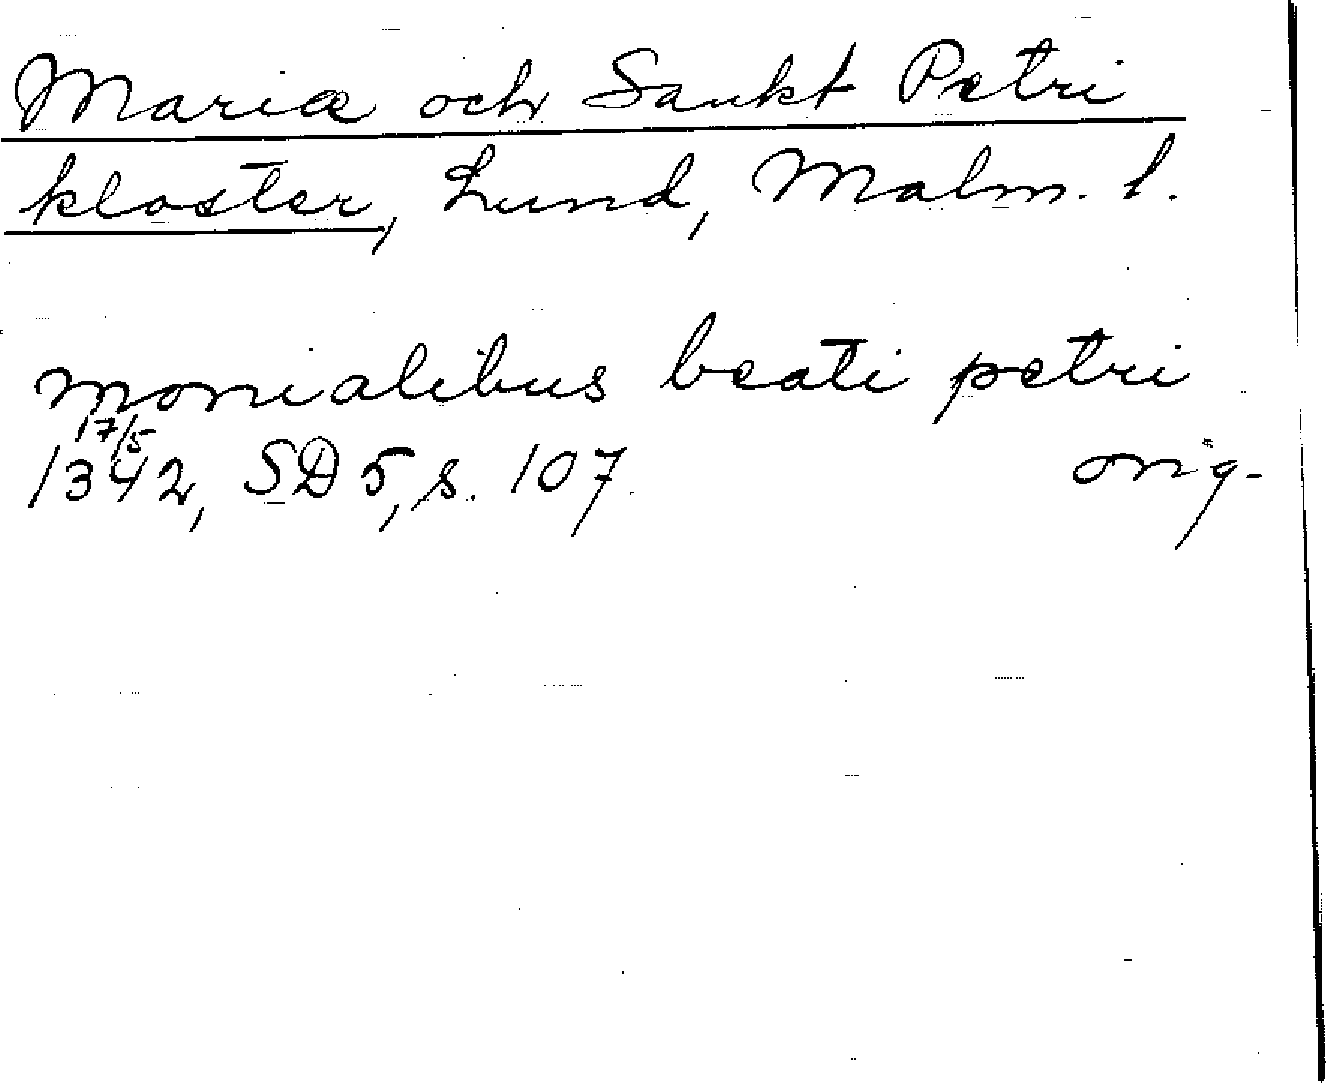 Mariæ och Sankt Petri
kloster, Lund, Malm. l.
monialibus beati petri
17/5
1342, SD 5, s. 107 orig.